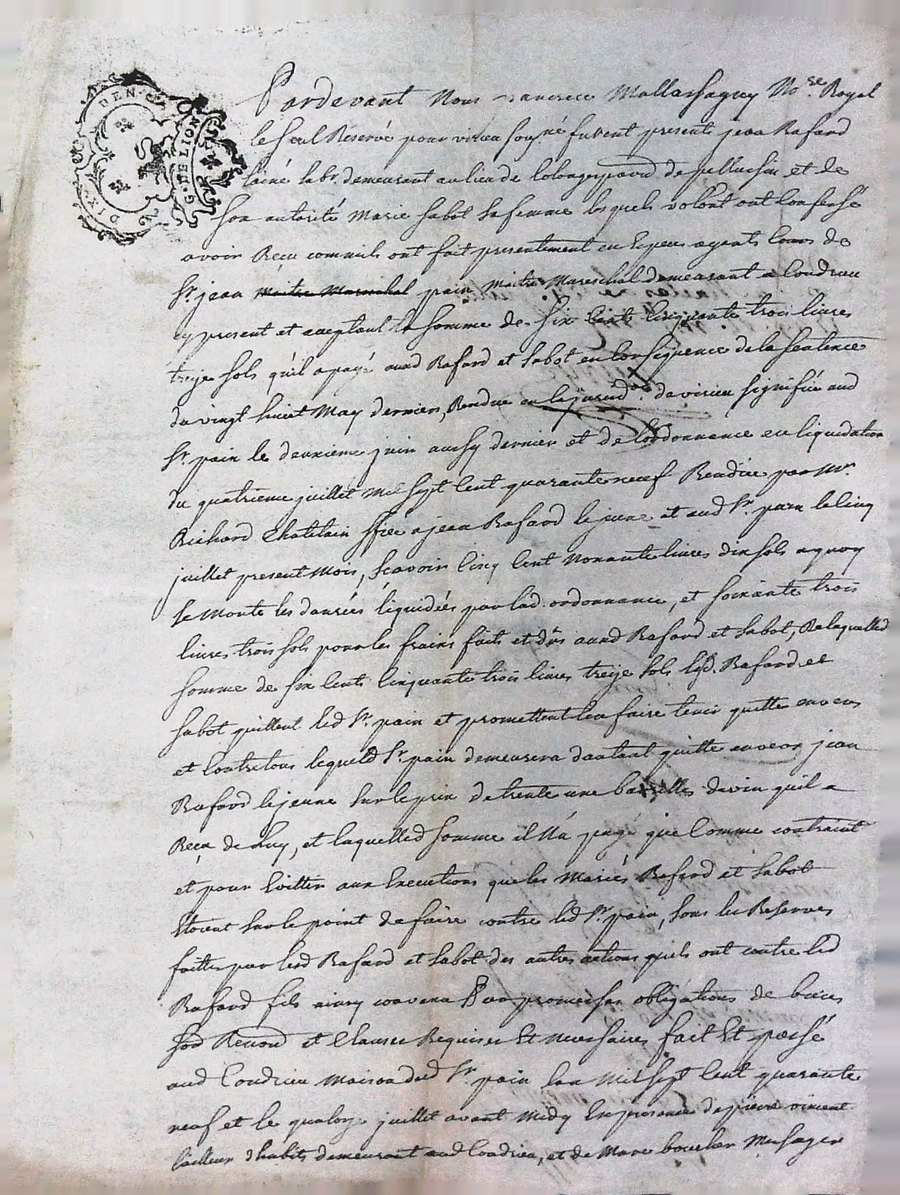 GN. DE LION
DIX D.
Pardevant Nous Mallassagny No.re Royal
le seul Réservé pour soug.né furent presents jean Rafard
laine lab.r demeurant au lieu de de pelluchin et de
son autorité Marie Sabot sa femme lesquels volont.t ont Confessé
avoir Reçu comme ils ont fait presentement en Especes Cours de
S.r jean Maitre Mareschal pain Maitre Mareschal demeurant a Condrieu
cy present et aceptant la somme de six Cent Cinquante trois livres
treze sols qu'il a payé aud Rafard et Sabot en Consequence de la Sentence
du vingt huict May dernier, Rendue en la jurid.on signifiée aud
S.r pain le deuxieme juin aussy dernier et de L'ordonnance en liquidation
du quatrieme juillet Mil Sept Cent quarante neuf Rendue par M.r
Richard Chatelain a jean Rafard le jeune et aud S.r pain le Cinq
juillet present Mois, Scavoir Cinq Cent Nonante livres dix sols a quoy
se Monte les danrées liquidées par lad. ordonnance, et soixante trois
livres trois sols pour les frais faits et dûs aud Rafard et Sabot, De laquelled
somme de six Cents Cinquante trois livres treze sols lesd. Rafard et
Sabot quittent led S.r pain et promettent l'en faire tenir quitte envers
et Contre tous lequeld S.r pain demeurera dautant quitte envers jean
Rafard le jeune sur le prix de trente une de vin qu'il a
Reçu de Luy, et laquelled somme il N'a payé que Comme contraint
et pour Eviter aux Executions que les Mariés Rafard et Sabot
Etoient sur le point de faire contre led S.r pain, sous les Reserves
faittes par lesd Rafard et Sabot des autres actions qu'ils ont contre led
Rafard fils ainsy convenu promesses obligations de biens
Renond et Clauses Requises Et Necessaires fait Et passé
aud Condrieu Maison dud S.r pain L'an Mil Sept Cent quarante
neuf et le quatorze juillet avant Midy En presence de pierre vincent
tailleur d'habits demeurant aud Condrieu, et de Marc boucher Messager